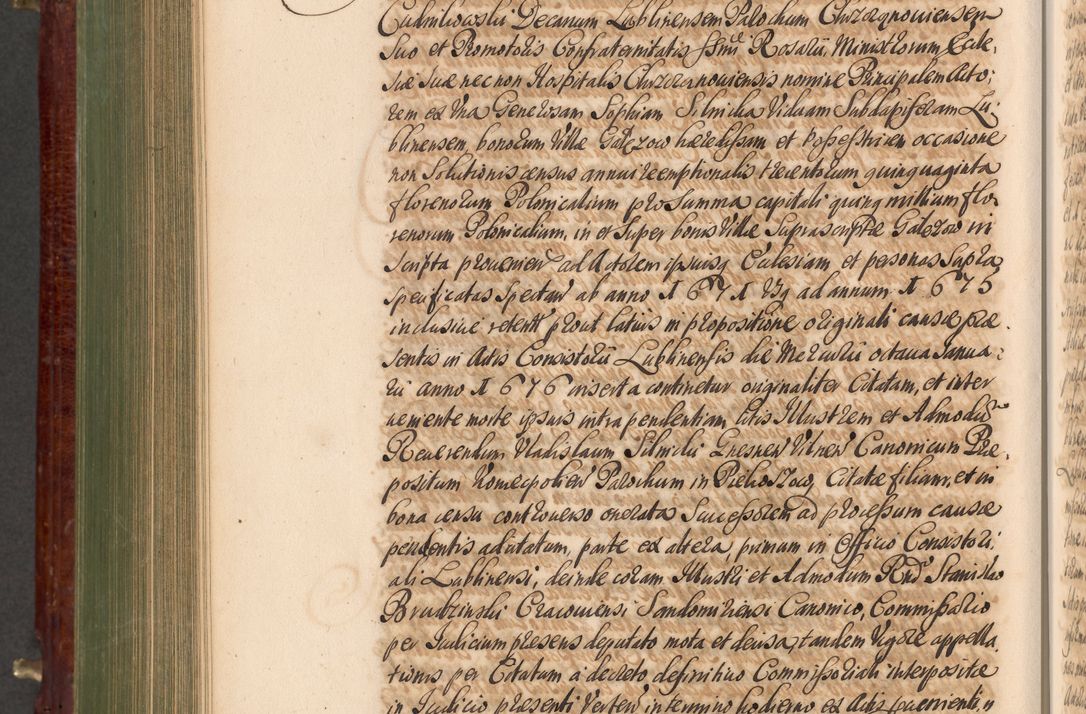 Cudnikowski Decanum Lublinensem Parochum Chrząznouiensem
suo et Promotoris Confraternitatis SSmi Rosarii, Ministrorum Eccle,
siæ suæ nec non Hospitalis Chrzcząnouiensis nomine Principalem Acto,
rem ex Vna Generosam Sophiam Silnicka Viduam Subdapiferam Lu,
blinensem, bonorum Villæ Gałęzow hæredissam et possessricem occasione
non Solutionis census annui reemptionalis trecentorum quinquaginta
florenorum Polonicalium pro Summa capitali quinq millium flo,
renorum Polonicalium, in et Super bonis Villæ Suprascriptæ Gałęzow in
scripta prouenien ad Actorem ipsiusq Ecclesiam et personas Supra
specificatas Spectan ab anno 1671 Vsq ad annum 1675
inclusiue retenti prout latius in propositione originali causæ præ,
sentis in Actis Consistorii Lublinensis die Mercurii octaua Janua,
rii anno 1676 inserta continetur originaliter Citatam, et inter
ueniente morte ipsius intra pendentiam litis Illustrem et Admodum
Reuerendum Vladislaum Silnicki Gnesnen Vilnen Canonicum Præ,
positum Parochum in Citatæ filium, et in
bona censu controuerso onerata Successorem ad processum causæ
pendentis adcitatum, parte ex altera, primum in Officio Consistori,
ali Lublinensi, deinde coram Illustri et Admodum Rndo Stanislao
Brudzinski Cracouiensi Sandomiriensi Canonico, Commissario
per Iudicium præsens deputato mota et decisa, tandem Vigore appella
tionis per Citatum a decreto definitiuo Commissoriali interpositæ
in Iudicio præsenti Verten in termino hodierno ex Actis